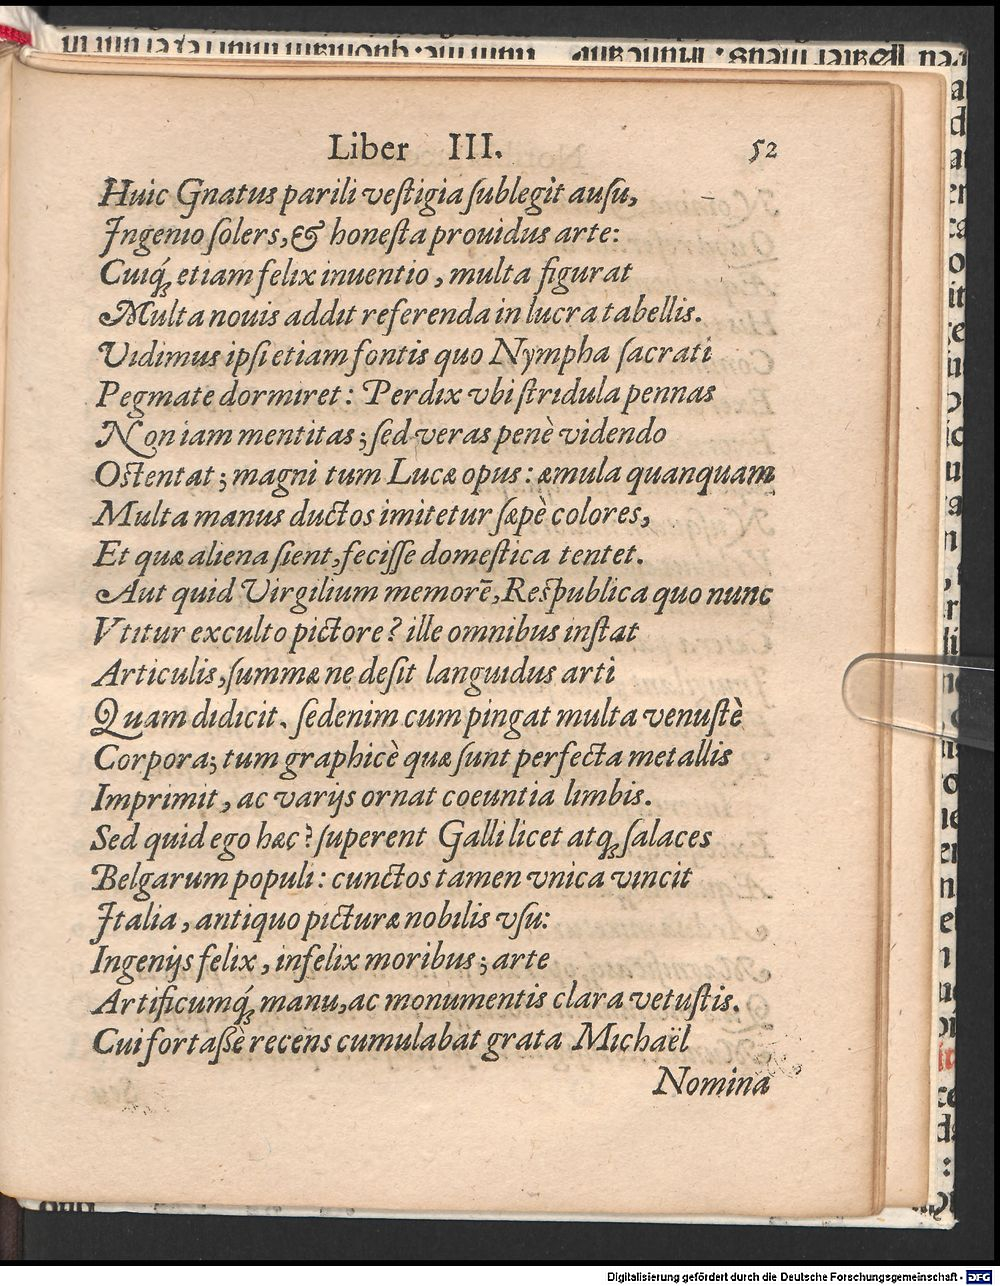 Liber III. 52
Huic Gnatus parili veſtigia ſublegit auſu,
Ingenio ſolers, & honeſta prouidus arte:
Cuiq́; etiam felix inuentio, multa figurat
Multa nouis addit referenda in lucra tabellis.
Vidimus ipſi etiam fontis quo Nympha ſacrati
Pegmate dormiret: Perdix vbi ſtridula pennas
Non iam mentitas; ſed veras penè videndo
Oſtentat; magni tum Lucæ opus: æmula quanquam
Multa manus ductos imitetur ſæpè colores,
Et quæ aliena ſient, feciſſe domeſtica tentet.
Aut quid Virgilium memorē, Reſpublica quo nunc
Vtitur exculto pictore? ille omnibus inſtat
Articulis, ſummæ ne deſit languidus arti
Quam didicit. ſedenim cum pingat multa venuſtè
Corpora; tum graphicè quæ ſunt perfecta metallis
Imprimit, ac varijs ornat coeuntia limbis.
Sed quid ego hæc? ſuperent Galli licet atq; ſalaces
Belgarum populi: cunctos tamen vnica vincit
Italia, antiquo picturæ nobilis vſu:
Ingenijs felix, infelix moribus; arte
Artificumq́; manu, ac monumentis clara vetuſtis.
Cui fortaſſè recens cumulabat grata Michaël
Nomina
Digitalisierung gefördert durch die Deutsche Forschungsgemeinschaft - DFG